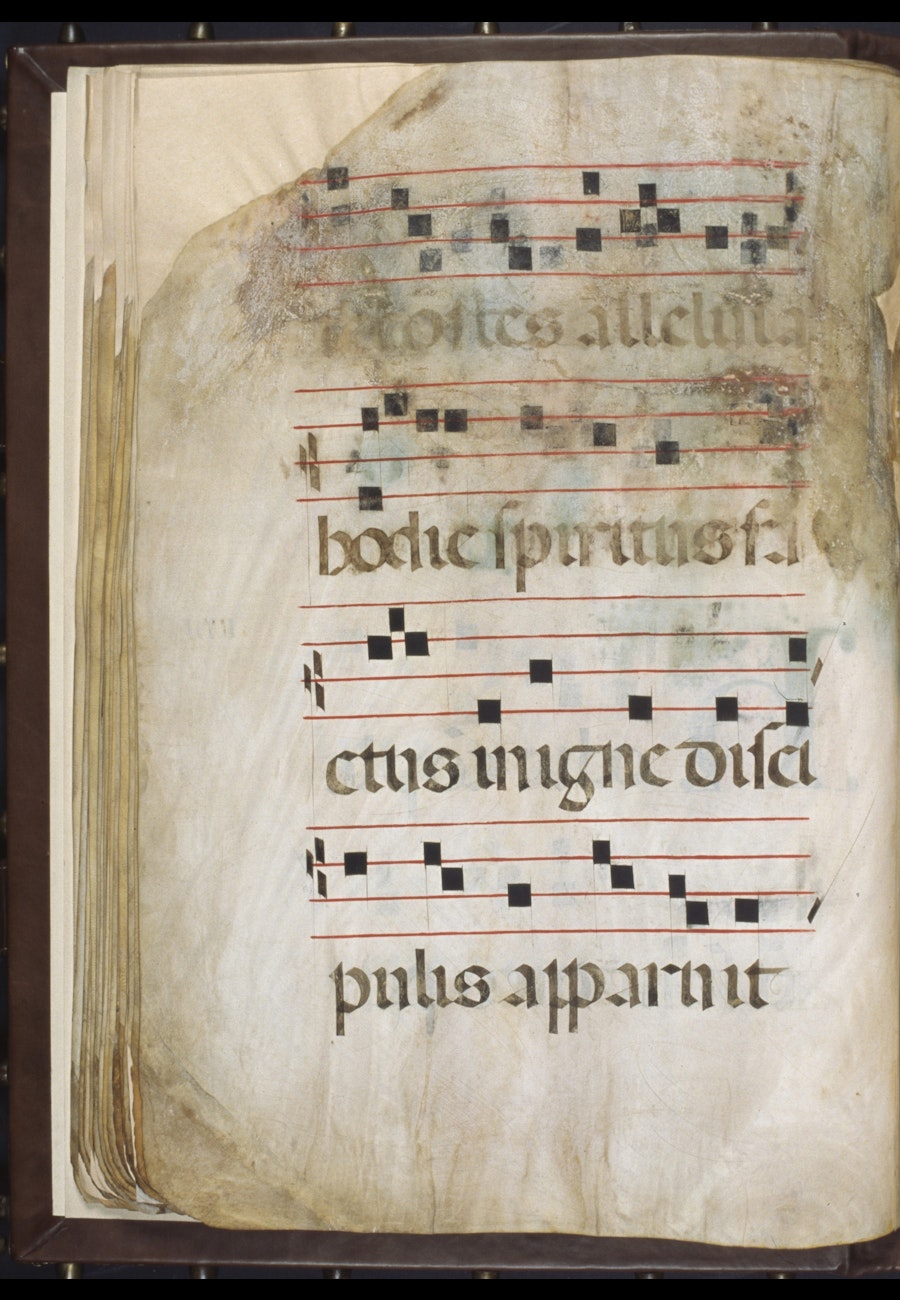 costes alleluia
hodie spiritus sa
ctus in igne disci
pulis apparuit